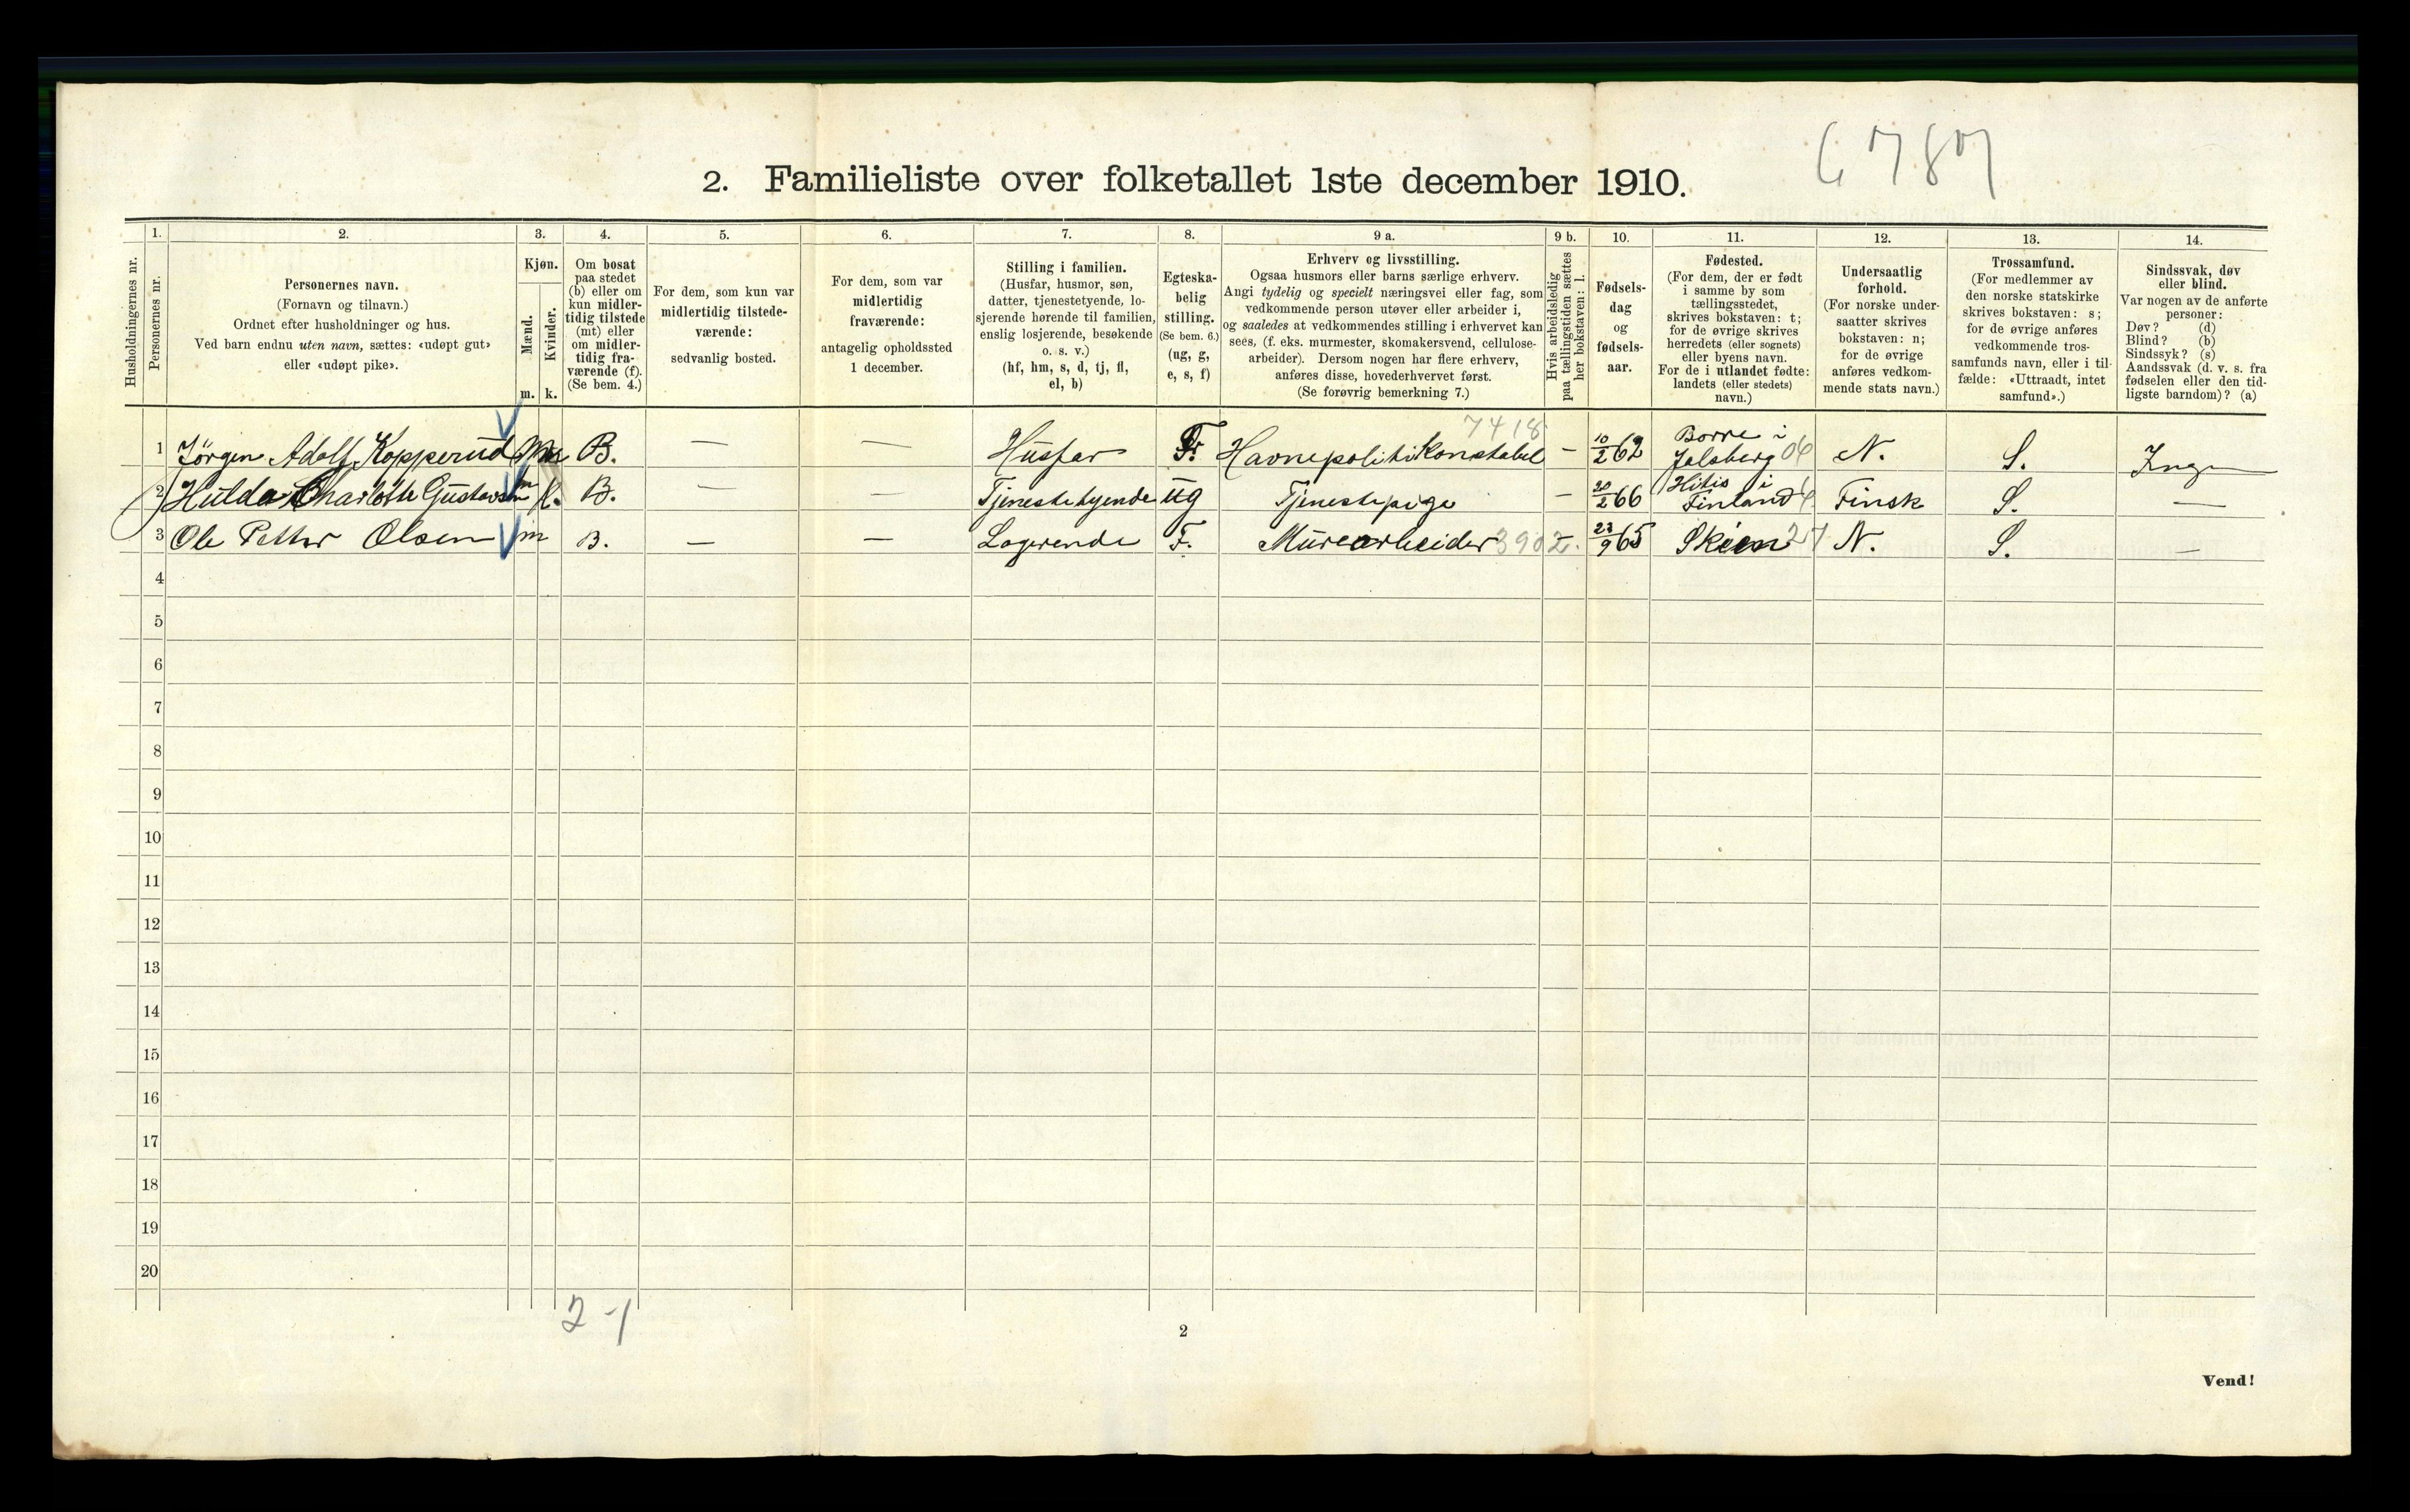 6787
2. Familieliste over folketallet 1ste december 1910.
Husholdningernes nr.
1.
Personernes nr.
2.
Personernes navn.
(Fornavn og tilnavn.)
Ordnet efter husholdninger og hus.
Ved barn endnu uten navn, sættes: «udøpt gut»
eller «udøpt pike».
3.
Kjøn.
Mænd.
Kvinder.
m. k.
4.
Om bosat
paa stedet
(b) eller om
kun midler-
tidig tilstede
(mt) eller
om midler-
tidig fra-
værende (f).
(Se bem. 4.)
5.
For dem, som kun var
midlertidig tilstede-
værende:
sedvanlig bosted.
6.
For dem, som var
midlertidig
fraværende:
antagelig opholdssted
1 december.
7.
Stilling i familien.
(Husfar, husmor, søn,
datter, tjenestetyende, lo-
sjerende hørende til familien,
enslig losjerende, besøkende
o. s. v.)
(hf, hm, s, d, tj, fl,
el, b)
8.
Egteska-
belig
stilling.
(Se bem. 6.)
(ug, g,
e, s, f)
9 a.
Erhverv og livsstilling.
Ogsaa husmors eller barns særlige erhverv.
Angi tydelig og specielt næringsvei eller fag, som
vedkommende person utøver eller arbeider i,
og saaledes at vedkommendes stilling i erhvervet kan
sees, (f. eks. murmester, skomakersvend, cellulose-
arbeider). Dersom nogen har flere erhverv,
anføres disse, hovederhvervet først.
(Se forøvrig bemerkning 7.)
9 b.
Hvis arbeidsledig
paa tællingstiden sættes
her bokstaven: l.
10.
Fødsels-
dag
og
fødsels-
aar.
11.
Fødested.
(For dem, der er født
i samme by som
tællingsstedet,
skrives bokstaven: t;
for de øvrige skrives
herredets (eller sognets)
eller byens navn.
For de i utlandet fødte:
landets (eller stedets)
navn.)
12.
Undersaatlig
forhold.
(For norske under-
saatter skrives
bokstaven: n;
for de øvrige
anføres vedkom-
mende stats navn.)
13.
Trossamfund.
(For medlemmer av
den norske statskirke
skrives bokstaven: s;
for de øvrige anføres
vedkommende tros-
samfunds navn, eller i til-
fælde: «Uttraadt, intet
samfund».)
14.
Sindssvak, døv
eller blind.
Var nogen av de anførte
personer:
Døv? (d)
Blind? (b)
Sindssyk? (s)
Aandssvak (d. v. s. fra
fødselen eller den tid-
ligste barndom)? (a)
1 Jörgen Adolf Kopperud B. — — Husfar Havnepolitikonstabel 7418 — 10/2 62 Borre i Jalsberg N. S. Ingen
2 Hulda Charlotte Gustavsen k. B. — — Tjenestetyende ug Tjenestepige — 20/2 66 Hitis i Finland Finsk S. —
3 Ole Petter Olsen m B. — — Logerende F. Murearbeider 3902 — 23/9 65 Skien 27 N. S. —
4
5
6
7
8
9
10
11
12
13
14
15
16
17
18
19
20
2-1
2
Vend!